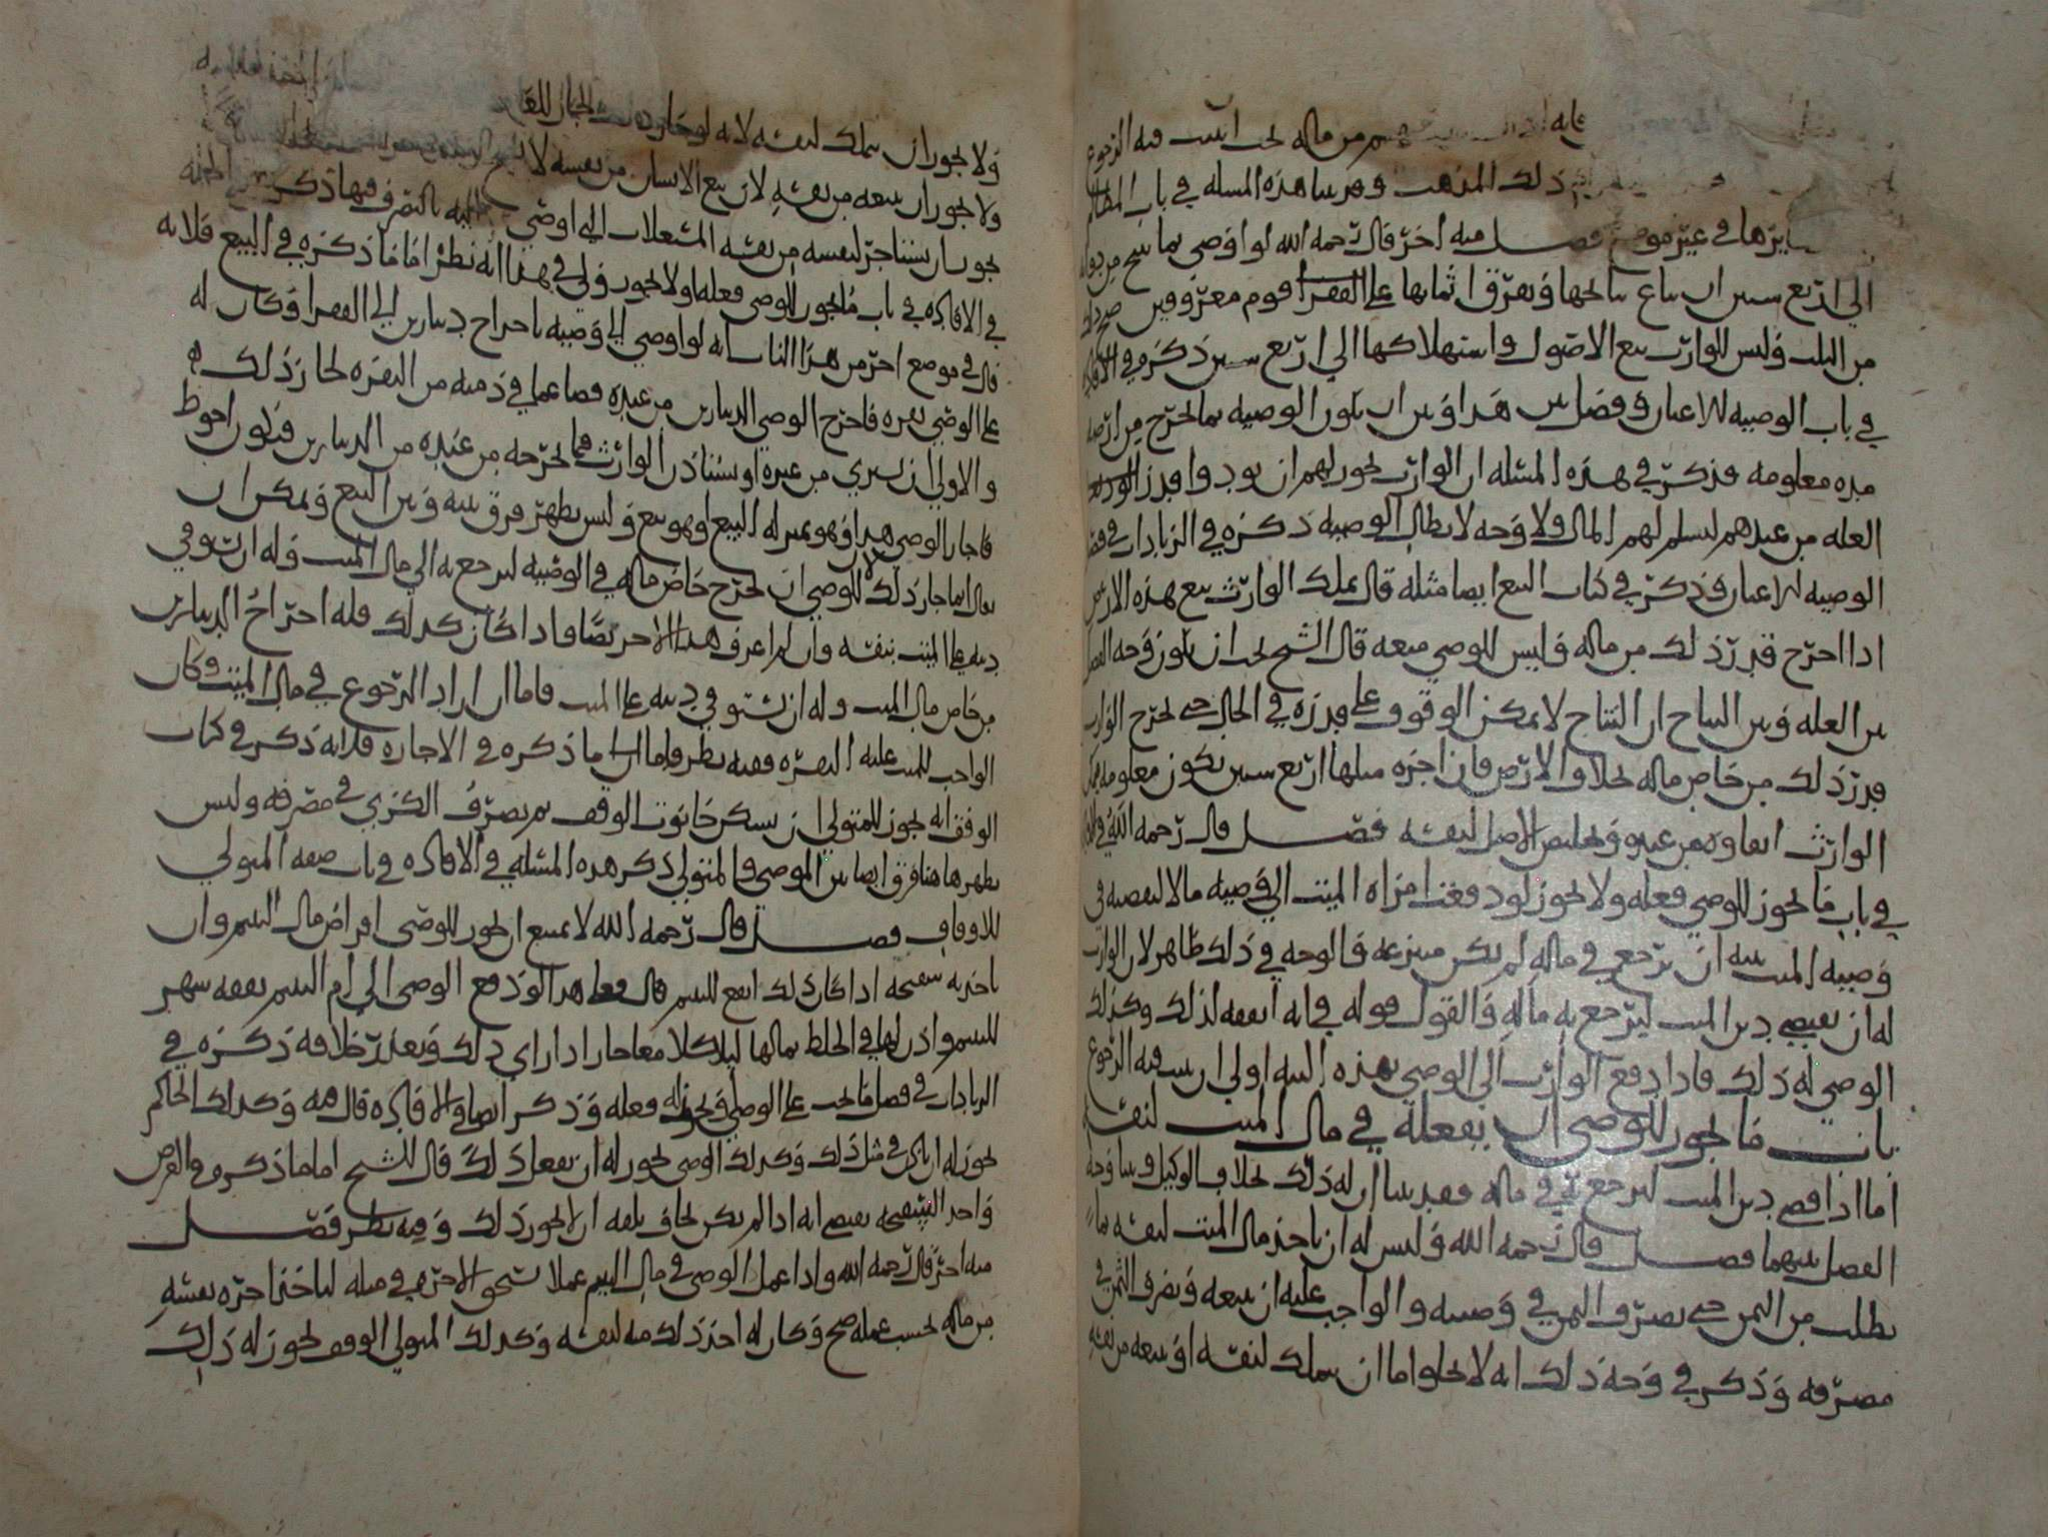 من ماله يجب اثبت فيه الرجوع
ذلك المذهب وقد بينا هذه المسله في باب المظالم
في غير موضع فصل منه اخر قال رحمه الله لو اوصى بما نتج من دوابه
الى اربع سنين ان يباع نتاجها ويفرق اثمانها على الفقرا قوم معروفين صح ذلك
من الثلث وليس للوارث بيع الاصول واستهلاكها الى اربع سنين ذكره في الافاده
في باب الوصيه للاعيان وفصل بين هذا وبين ان يكون الوصيه بما يخرج من ارضه
مده معلومه فذكر في هذه المسئله ان الوارث يجوز لهم ان يودوا قدر
الغله من عندهم ليسلم لهم المال ولا وجه لابطال الوصيه ذكره في الزيادات في
الوصيه للاعيان وذكر في كتاب البيع ايضا مثله قال يملك الوارث بيع هذه الارض
اذا اخرج قدر ذلك من ماله وليس للوصي منعه قال الشيخ يجب ان يكون وجه الفصل
بين الغله وبين النتاج ان النتاج لا يمكن الوقوف على قدره في الحال حتى يخرج الوارث
قدر ذلك من خاص ماله بخلاف الارض فان اجره مثلها اربع سنين تكون معلومه
الوارث من غيره وتخليص الاصل لنفسه فصل قال رحمه الله
في باب ما يجوز للوصي فعله ولا يجوز لو دفعت امراه الميت الى وصيه مالا ليقضيه في
وصيه الميت بنيه ان ترجع في ماله لم يكن متبرعه فالوجه في ذلك ظاهر لان الوارث
له ان يقضي دين الميت ليرجع به ماله والقول قوله في انه انفقه لذلك وكذلك
الوصي له ذلك فاذا دفع الوارث الى الوصي بهذه النيه اولى ان يثبت فيه الرجوع
باب ما يجوز للوصي ان يفعله في مال الميت لنفسه
اما اذا قضى دين الميت ليرجع في ماله فقد بينا ان له ذلك بخلاف الوكيل وبينا وجه
الفصل بينهما فصل قال رحمه الله وليس له ان ياخذ مال الميت لنفسه بما
يطلب من الثمن حتى يصرف الثمن في وصيته والواجب عليه ان يبيعه ويصرف الثمن في
مصرفه وذكر في وجه ذلك انه لا يخلو اما ان يتملك لنفسه او يبيعه من نفسه
ولا يجوز ان يتملك لنفسه لانه لو جاز ذلك لجاز للقا
ولا يجوز ان يبيعه من نفسه لان بيع الانسان من نفسه لا
يجوز ان يستاجر لنفسه من نفسه المستغلات التي اوصي اليه بالتصرف فيها ذكر
في الافاده في باب ما يجوز للوصي فعله او لا يجوز ولي في هذا انه نظر افاما ذكره في البيع فلانه
قال في موضع اخر من هذا الباب انه لو اوصى الى وصيه باخراج دينارين الى الفقرا وكان له
على الوصي بقره فاخرج الوصي الدينارين من عنده قصا عما في ذمته من البقره لجاز ذلك
والاولى ان يشتري من غيره او يستاذن الوارث فيما يخرجه من عنده من الدينارين فيكون احوط
فاجاز للوصي هذا وهو بمنزله البيع او هو بيع وليس يظهر فرق بينه وبين البيع ويمكن ان
يقال انما جاز ذلك لان للوصي ان يخرج خاص ماله في الوصيه ليرجع به الى مال الميت وله ان يستوفي
دينه على الميت بنفسه وان لم اعرف هذا الاخر نصا فاذا كان كذلك فله اخراج الدينارين
من خاص مال الميت وله ان يستوفي دينه على الميت فاما ان اراد الرجوع في مال الميت وكان
الواجب للميت عليه البقره ففيه نظر واما ما ذكره في الاجاره فلانه ذكر في كتاب
الوقف انه يجوز للمتولي ان يسكن حانوت الوقف ثم يصرف الكرى في مصرفه وليس
يظهر هاهنا فرق ايضا بين الموصي والمتولي ذكر هذه المسئله في الافاده في باب صفه المتولي
للاوقاف فصل قال رحمه الله لا يمتنع ان يجوز للوصي اقراض مال اليتيم وان
ياخذ به سفتجه اذا كان ذلك انفع لليتيم قال فعلى هذا لو دفع الوصي الى ام اليتيم نفقه شهر
لليتيم واذن لها في الخلط بمالها لياكلا معا جاز اذا راى ذلك وتعذر خلافه ذكره في
الزيادات في فصل ما يجب على الوصي ويجوز له فعله وذكر ايضا في الافاده قال فيه وكذلك الحاكم
يجوز له ان ياذن في مثل ذلك وكذلك الوصي يجوز له ان يفعل ذلك قال الشيخ اما ما ذكره في القرض
واخذ السفتجه يقتضي انه اذا لم يكن يخاف تلفه ان لا يجوز ذلك وفيه نظر فصل
منه اخر قال رحمه الله واذا عمل الوصي في مال اليتيم عملا يستحق الاجره في مثله لياخذ اجره نفسه
من ماله بحسب عمله صح وكان له اخذ ذلك منه لنفسه وكذلك المتولي الوقف يجوز له ذلك